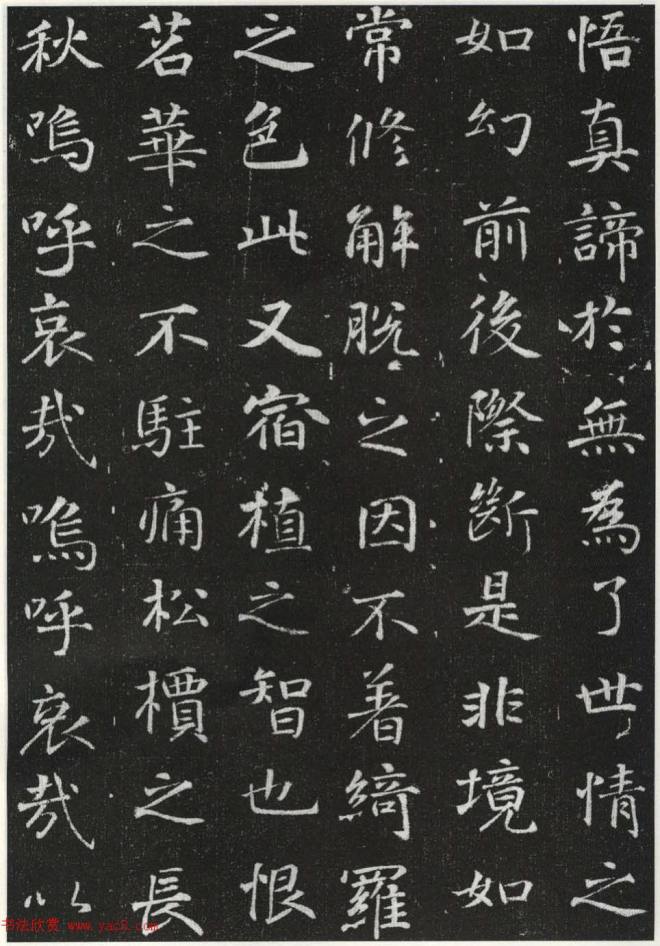 悟真諦於無為了世情之
如幻前後際斷是非境如
常修解脫之因不著綺羅
之色此又宿植之智也恨
苕華之不駐痛松檟之長
秋嗚呼哀哉嗚呼哀哉以
书法欣赏 www.yac8.com